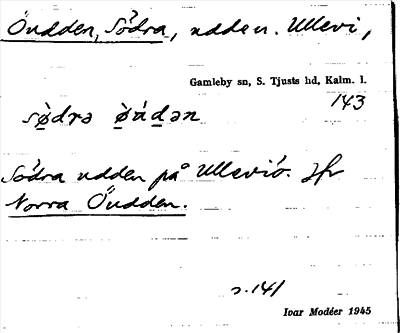 Öudden, Södra, udden. Ullevi,
Gamleby sn, S. Tjusts hd, Kalm. l.
143
sø̀drə ø̀ud̲ən
Södra udden på Ulleviö. Jfr
Norra Öudden.
s. 141
Ivar Modéer 1945